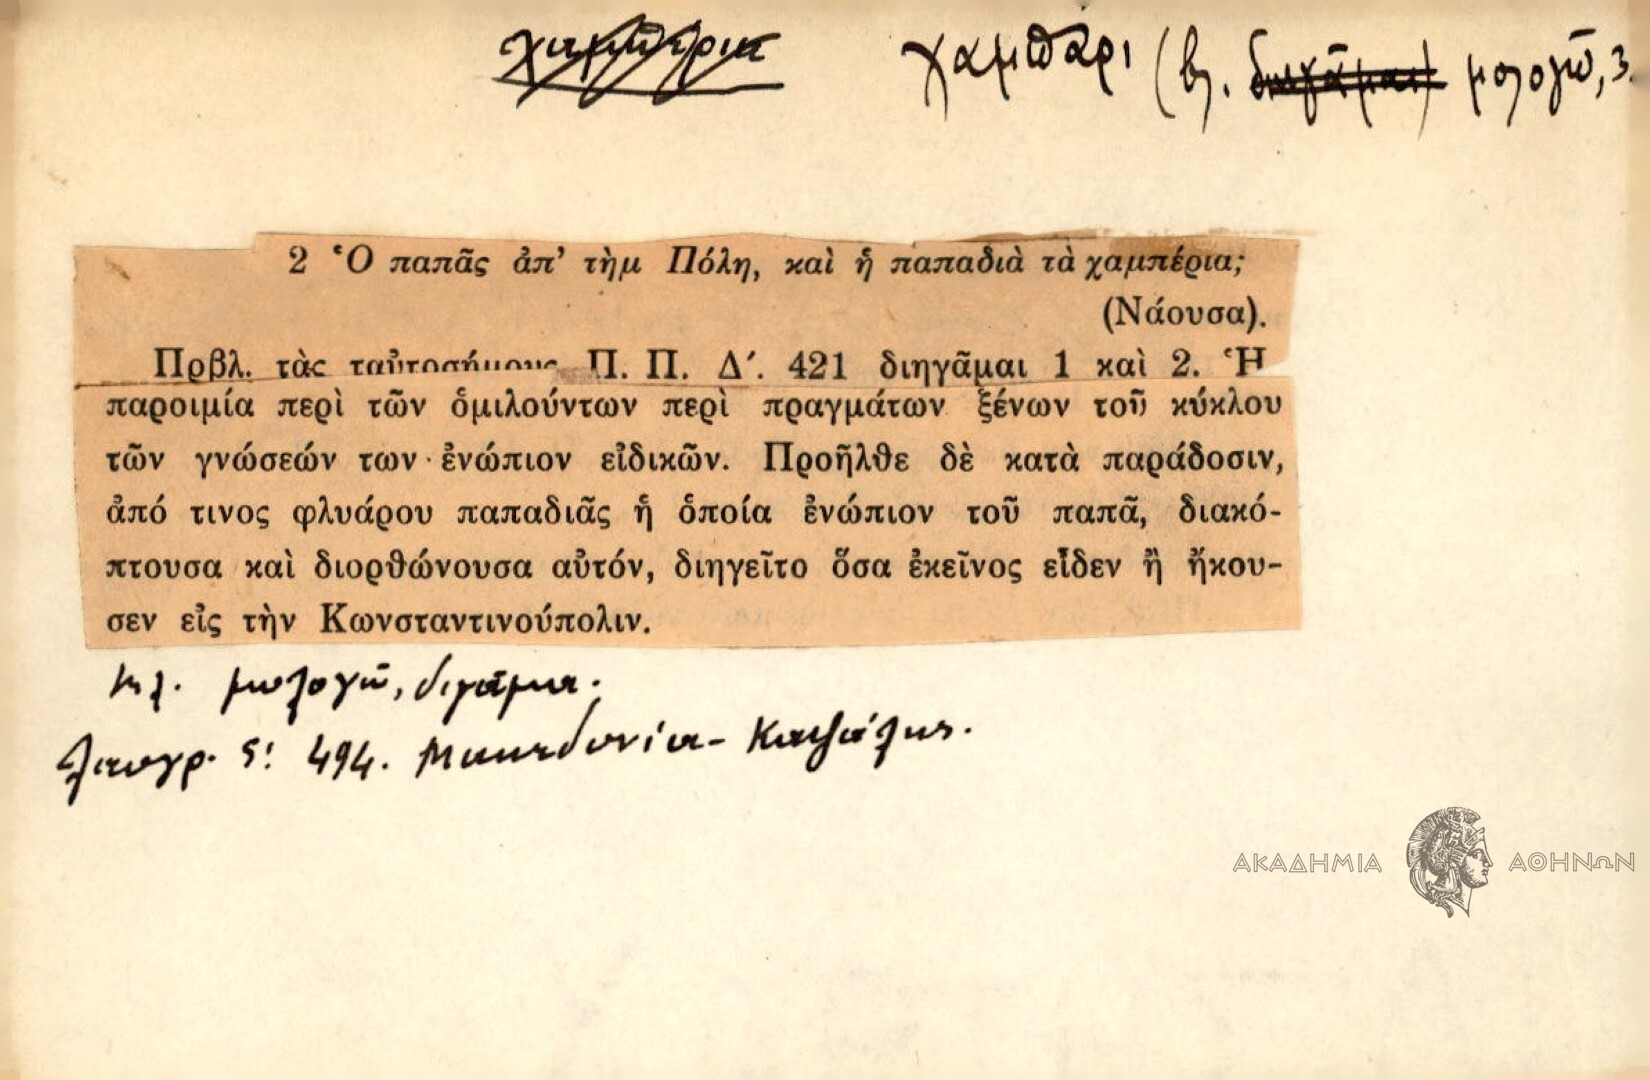 χαμπέρια χαμπάρι (βλ. διηγᾶμαι) μολογῶ, 3.
2 Ὁ παπᾶς ἀπ' τὴμ Πόλη, καὶ ἡ παπαδιὰ τὰ χαμπέρια;
(Νάουσα).
Πρβλ. τὰς ταὐτοσήμους Π. Π. Δ΄. 421 διηγᾶμαι 1 καὶ 2. Ἡ
παροιμία περὶ τῶν ὁμιλούντων περὶ πραγμάτων ξένων τοῦ κύκλου
τῶν γνώσεών των ἐνώπιον εἰδικῶν. Προῆλθε δὲ κατὰ παράδοσιν,
ἀπό τινος φλυάρου παπαδιᾶς ἡ ὁποία ἐνώπιον τοῦ παπᾶ, διακό-
πτουσα καὶ διορθώνουσα αὐτόν, διηγεῖτο ὅσα ἐκεῖνος εἶδεν ἢ ἤκου-
σεν εἰς τὴν Κωνσταντινούπολιν.
μολογῶ,
Λαογρ. Ϛ΄. 494. Μακεδονία -
ΑΚΑΔΗΜΙΑ ΑΘΗΝΩΝ